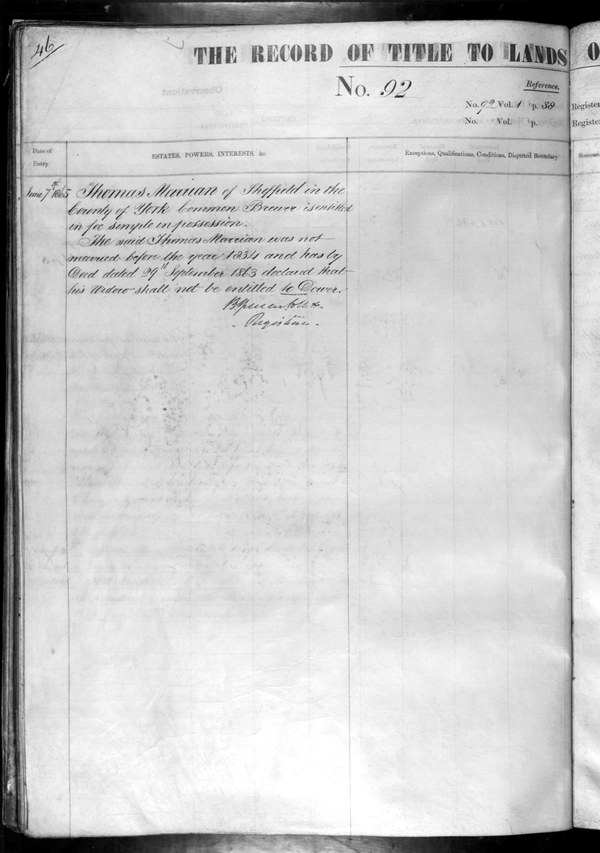 46
THE RECORD OF TITLE TO LANDS
No. 92
Reference.
No. 92 Vol. 1 p. 39
No. Vol. p.
O
Register
Register
Date of
Entry.
ESTATES, POWERS, INTERESTS, &c.
Exceptions, Qualifications, Conditions, Disputed Boundary
June 7th 1865 Thomas Marrian of Sheffield in the
County of York Common Brewer is entitled
in fee simple in possession.
The said Thomas Marrian was not
married before the year 1834 and has by
Deed dated 29th September 1863 declared that
his Widow shall not be entitled to Dower.
Registrar.